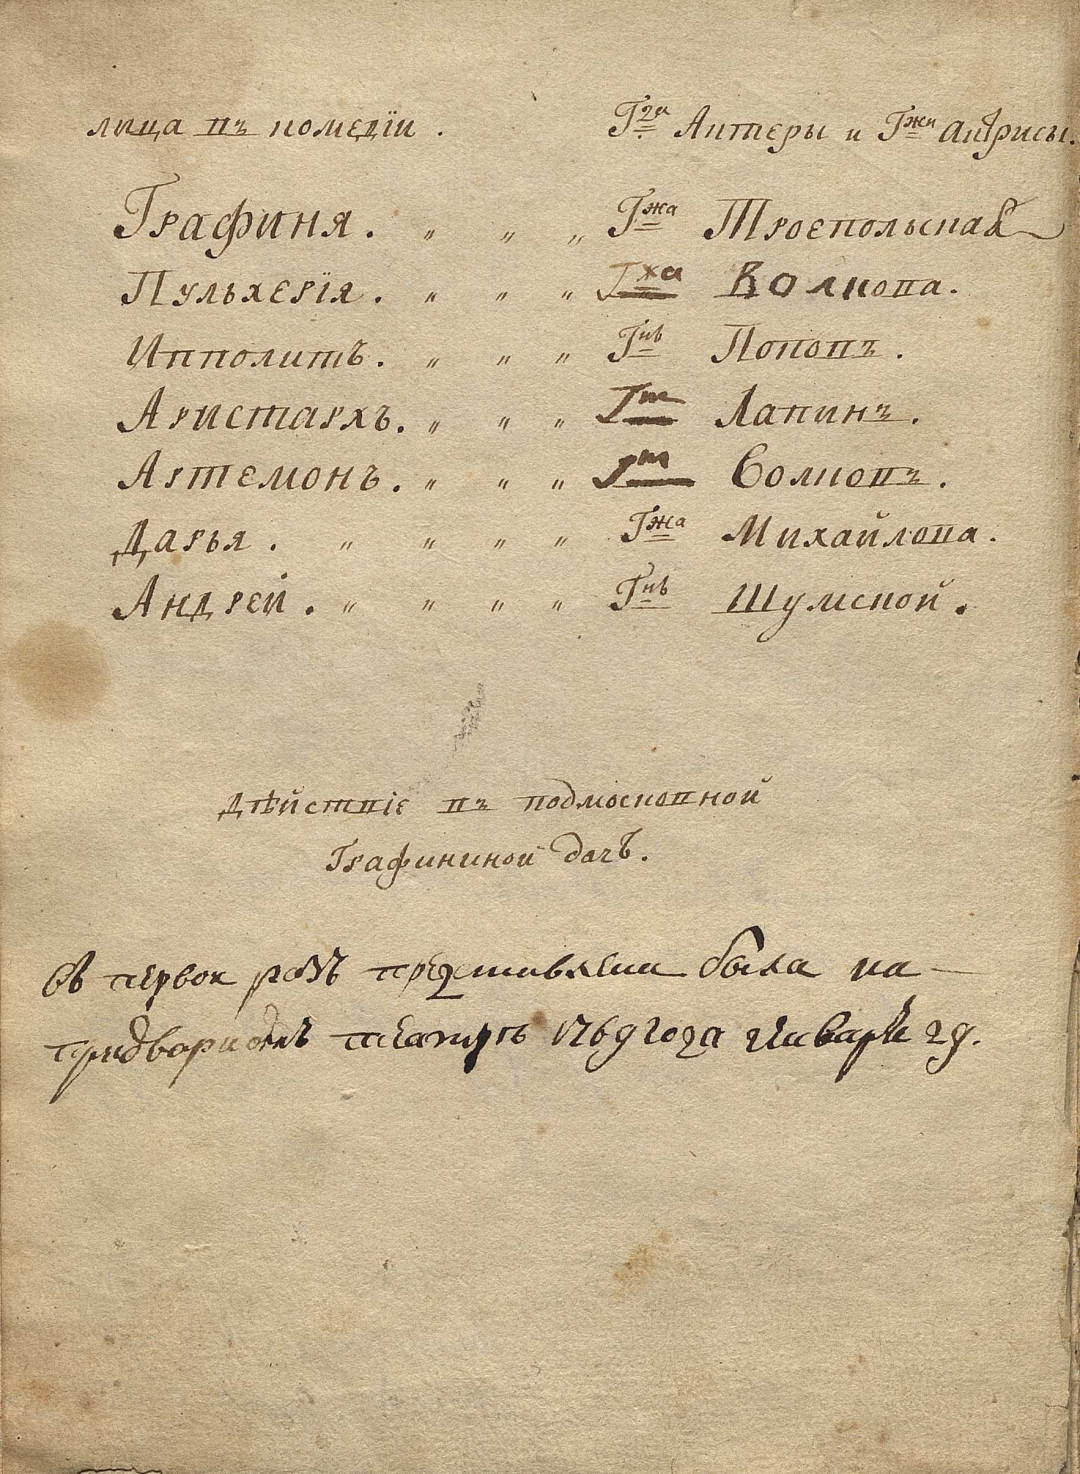 лица въ комедїи . Гда Актеры и Гжи актрисы.
Графиня . „ „ „ Гжа Троепольская
Пульхерїя . „ „ „ Гжа Волкова .
Ипполитъ . „ „ „ Гнъ Поповъ .
Аристархъ . „ „ „ Гнъ Лапинъ .
Артемонъ . „ „ „ Гнъ Волковъ .
Дарья . „ „ „ „ Гжа Михайлова .
Андрей . „ „ „ „ Гнъ Шумской .
Дѣйствіе въ подмосковной
Графининой дачѣ .
въ первои разъ представлена была на
придворномъ театрѣ 1769 года генваря 29.